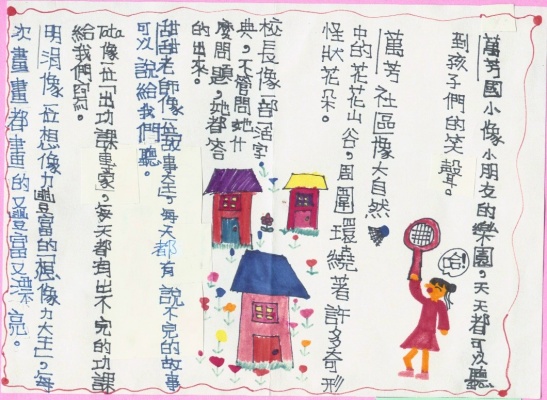 萬芳國小像小朋友的樂園，天天都可以聽
到孩子們的笑聲。
萬芳社區像大自然
中的花花山谷，周圍環繞著許多奇形
怪狀花朵。
校長像一部活字
典，不管問她什
麼問題，她都答
的出來。
甜甜老師像一位故事大王，每天都有說不完的故事
可以說給我們聽。
Tata像一位「出功課專家」，每天都有出不完的功課
給我們寫。
明涓像一位想像力豐富的「想像力大王」，每
次畫畫都畫的又豐富又漂亮。
哈!